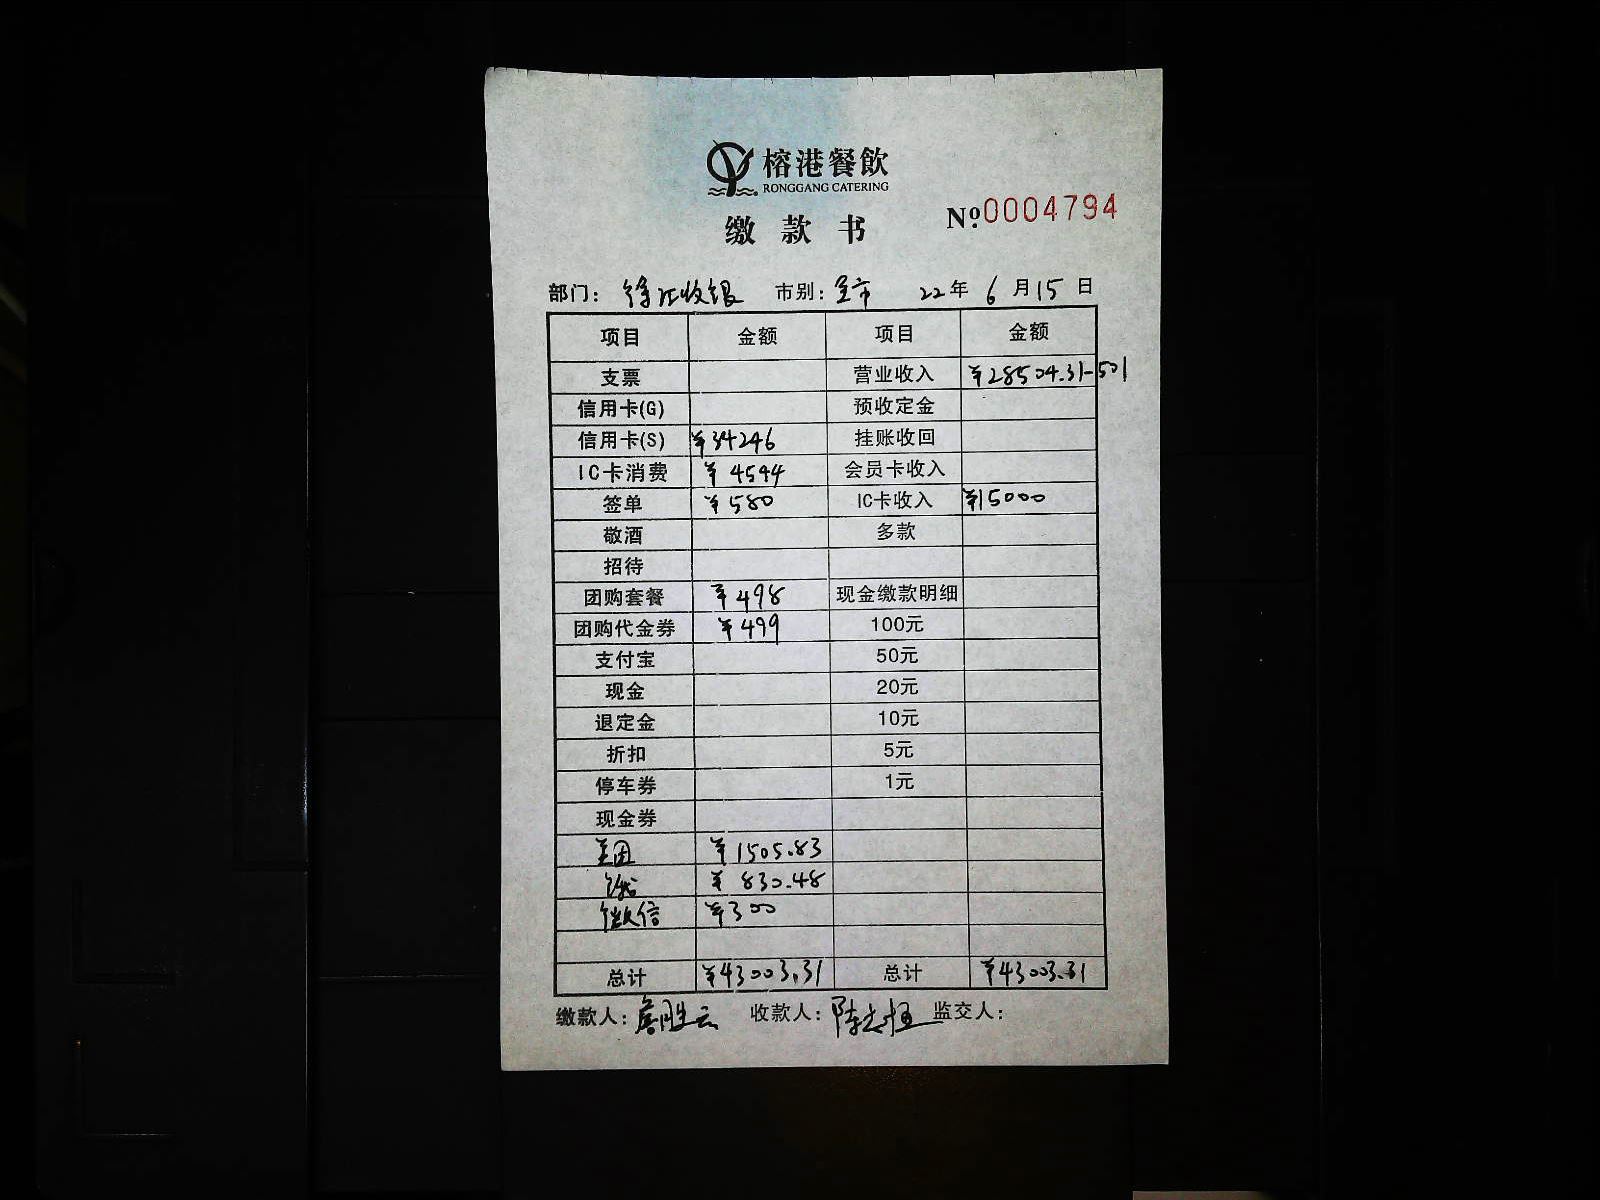 榕港餐飲
RONGGANG CATERING
缴款书 №0004794
部门：徐汇收银 市别：全市 22年6月15日
项目 金额 项目 金额
支票 营业收入 ¥28504.31-501
信用卡(G) 预收定金
信用卡(S) ¥34246 挂账收回
IC卡消费 ¥4544 会员卡收入
签单 ¥580 IC卡收入 ¥15000
敬酒 多款
招待
团购套餐 ¥498 现金缴款明细
团购代金券 ¥499 100元
支付宝 50元
现金 20元
退定金 10元
折扣 5元
停车券 1元
现金券
美团 ¥1505.83
¥830.48
微信 ¥300
总计 ¥43003.31 总计 ¥43003.31
缴款人：詹胜云 收款人：陈志恒 监交人：